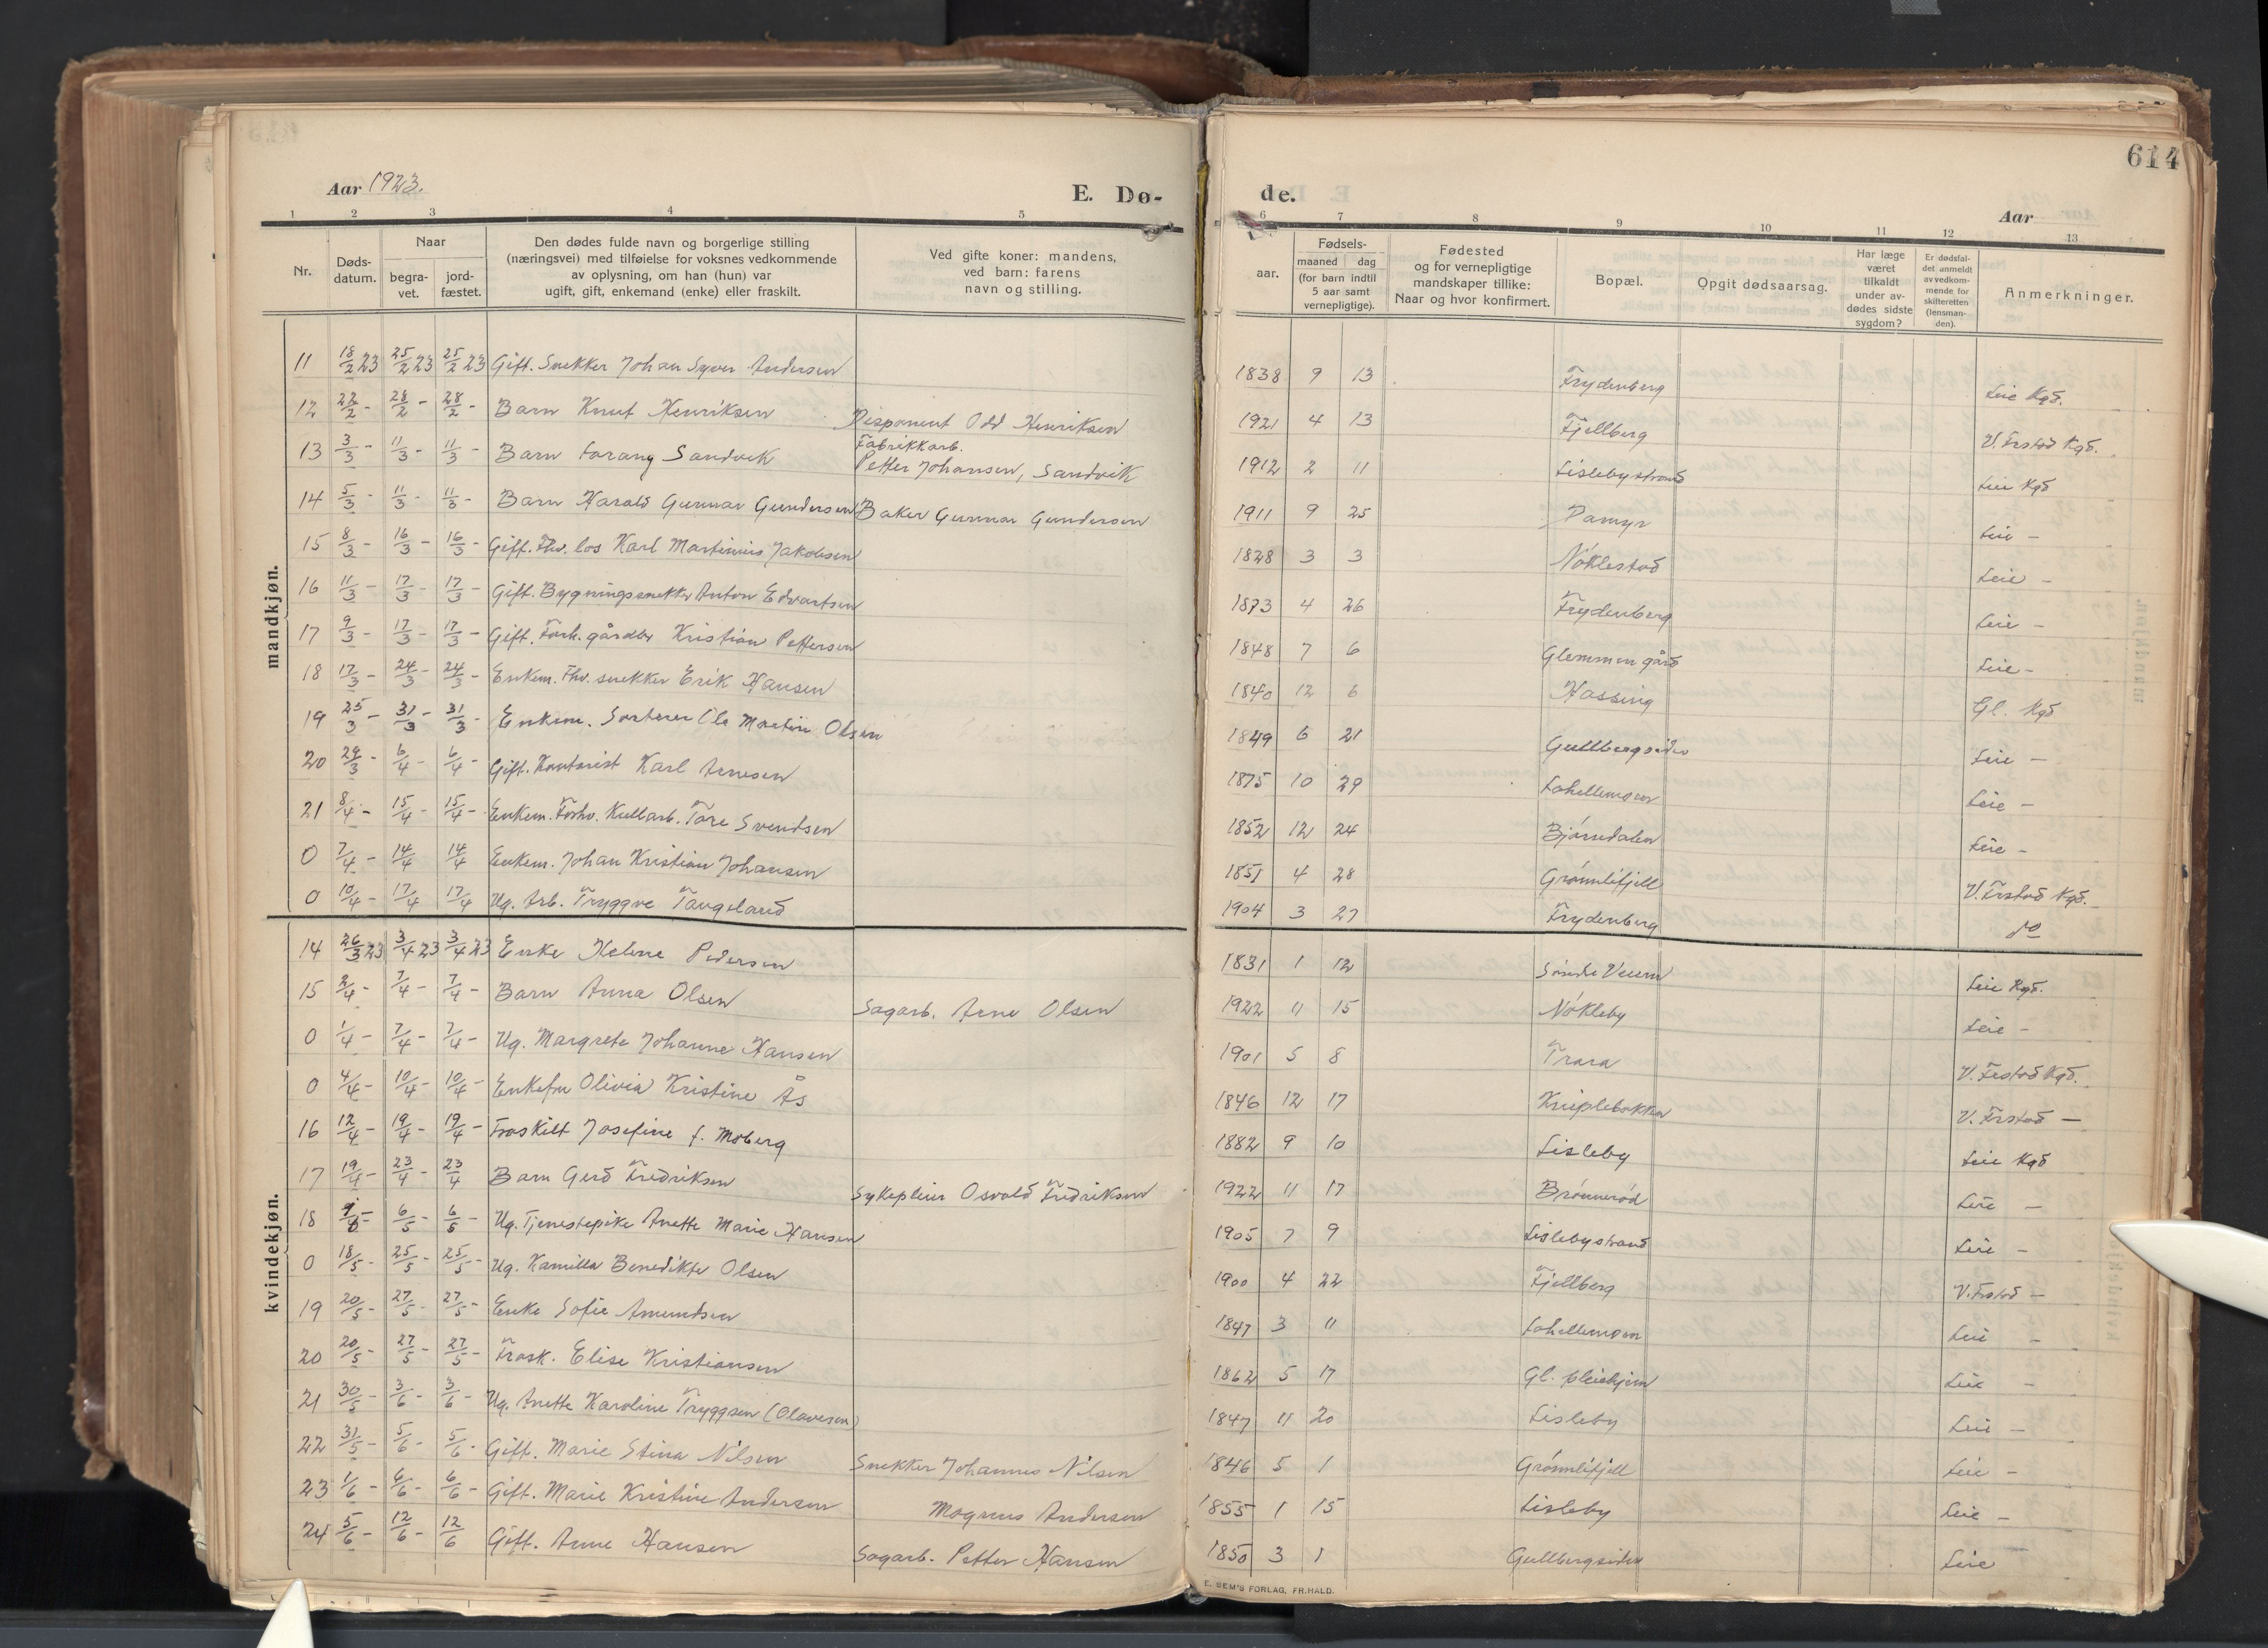 614
Aar 1923.
E. Dø-
de.
Aar
1 2 3 4 5 6 7 8 9 10 11 12 13
Nr.
Døds-
datum.
Naar
begra-
vet.
jord-
fæstet.
Den dødes fulde navn og borgerlige stilling
(næringsvei) med tilføielse for voksnes vedkommende
av oplysning, om han (hun) var
ugift, gift, enkemand (enke) eller fraskilt.
Ved gifte koner: mandens,
ved barn: farens
navn og stilling.
aar.
Fødsels-
maaned dag
(for barn indtil
5 aar samt
vernepligtige).
Fødested
og for vernepligtige
mandskaper tillike:
Naar og hvor konfirmert.
Bopæl.
Opgit dødsaarsag.
Har læge
været
tilkaldt
under av-
dødes sidste
sygdom?
Er dødsfal-
det anmeldt
av vedkom-
mende for
skifteretten
(lensman-
den).
Anmerkninger.
mandkjøn.
11 18/2 23 25/2 23 25/2 23 Gift. Snekker Johan Syver Andersen 1838 9 13 Frydenberg Leie Kgd.
12 22/2 - 28/2 - 28/2 - Barn Knut Henriksen Disponent Odd Henriksen 1921 4 13 Fjellberg V. Frstad Kgd.
13 3/3 - 11/3 - 11/3 - Barn Sandvik Fabrikkarb.
Petter Johansen, Sandvik 1912 2 11 Lislebystrand Leie Kgd
14 5/3 - 11/3 - 11/3 - Barn Harald Gunnar Gundersen Baker Gunnar Gundersen 1911 9 25 Pamyr Leie -
15 8/3 - 16/3 - 16/3 - Gift. Fhv. los Karl Martinius Jakobsen 1828 3 3 Nöklestad Leie -
16 11/3 - 17/3 - 17/3 - Gift. Bygningssnekker Anton Edvartsen 1873 4 26 Frydenberg Leie -
17 9/3 - 17/3 - 17/3 - Gift. Forh. gårdbr Kristian Pettersen 1848 7 6 Glemmen gård Leie -
18 17/3 - 24/3 - 24/3 - Enkem. Fhv. snekker Erik Hansen 1840 12 6 Hassing Gl. Kgd
19 25/3 - 31/3 - 31/3 - Enkem. Sorterer Ole Martin Olsen 1849 6 21 Gullbergsiden Leie -
20 29/3 - 6/4 - 6/4 - Gift. Kontorist Karl Arnesen 1875 10 29 Lahellemoen Leie -
21 8/4 - 15/4 - 15/4 - Enkem. Forhv. Kullarb. Tore Svendsen 1852 12 24 Bjørndalen Leie -
0 7/4 - 14/4 14/4 Enkem. Johan Kristian Johansen 1851 4 28 Grönnlifjell V. Frstad Kgd.
0 10/4 - 17/4 17/4 Ug. Arb. Tryggve Tangeland 1904 3 27 Frydenberg do
kvindekjøn.
14 26/3 23 3/4 23 3/4 23 Enke Helene Pedersen 1831 1 12 Söndre Veum Leie Kgd.
15 2/4 - 7/4 - 7/4 - Barn Anna Olsen Sagarb. Arne Olsen 1922 11 15 Nökleby Leie -
0 1/4 - 7/4 - 7/4 - Ug. Margrete Johanne Hansen 1901 5 8 Trara V. Frstad Kgd.
0 4/4 - 10/4 - 10/4 - Enkefru Olivia Kristine Ås 1846 12 17 Kniplebakken V. Frstad -
16 12/4 - 19/4 - 19/4 - Fraskilt Josefine f. Moberg 1882 9 10 Lisleby Leie Kgd
17 19/4 - 23/4 - 23/4 Barn Gerd Fredriksen Sykepleier Osvald Fredriksen 1922 11 17 Brönneröd Leie -
18 6/5 - 6/5 - Ug. Tjenestepike Anette Marie Hansen 1905 7 9 Lislebystrand Leie -
0 18/5 - 25/5 - 25/5 - Ug. Kamilla Benedikte Olsen 1900 4 22 Fjellberg V. Frstad -
19 20/5 - 27/5 - 27/5 - Enke Sofie Amundsen 1847 3 11 Lahellemoen Leie -
20 20/5 - 27/5 - 27/5 - Frask. Elise Kristiansen 1862 5 17 Gl. pleiehjem Leie -
21 30/5 - 3/6 - 3/6 - Ug. Anette Karoline Tryggsen (Olavesen) 1847 11 20 Lisleby Leie -
22 31/5 - 5/6 - 5/6 - Gift. Marie Stina Nilsen Snekker Johannes Nilsen 1846 5 1 Grönnlifjell Leie -
23 1/6 - 6/6 - 6/6 - Gift. Marie Kristine Andersen Magnus Andersen 1855 1 15 Lisleby Leie -
24 5/6 - 12/6 - 12/6 Gift. Anne Hansen Sagarb. Petter Hansen 1850 3 1 Gullbergsiden Leie
E. SEM'S FORLAG, FR.HALD.